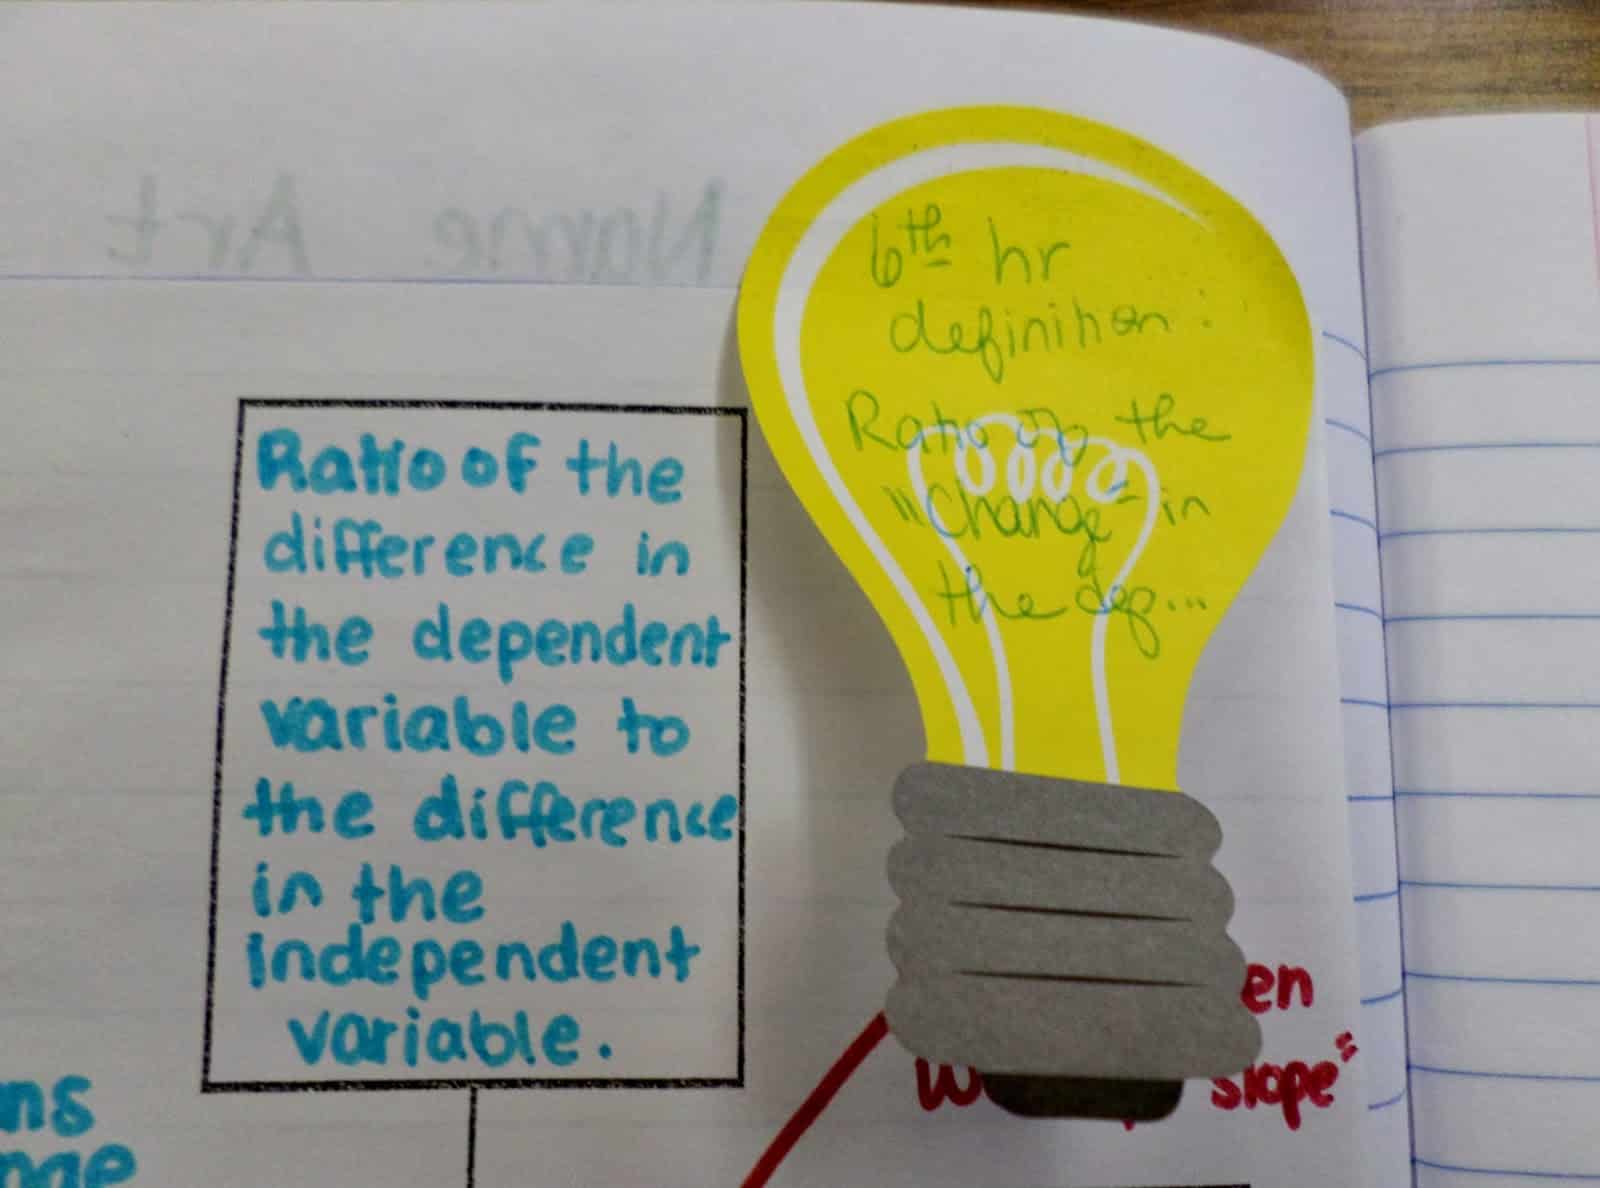 Name Art
Ratio of the
difference in
the dependent
variable to
the difference
in the
independent
variable.
6th hr
definition:
Ratio of the
"Change" in
the dep...
en
slope"
ns